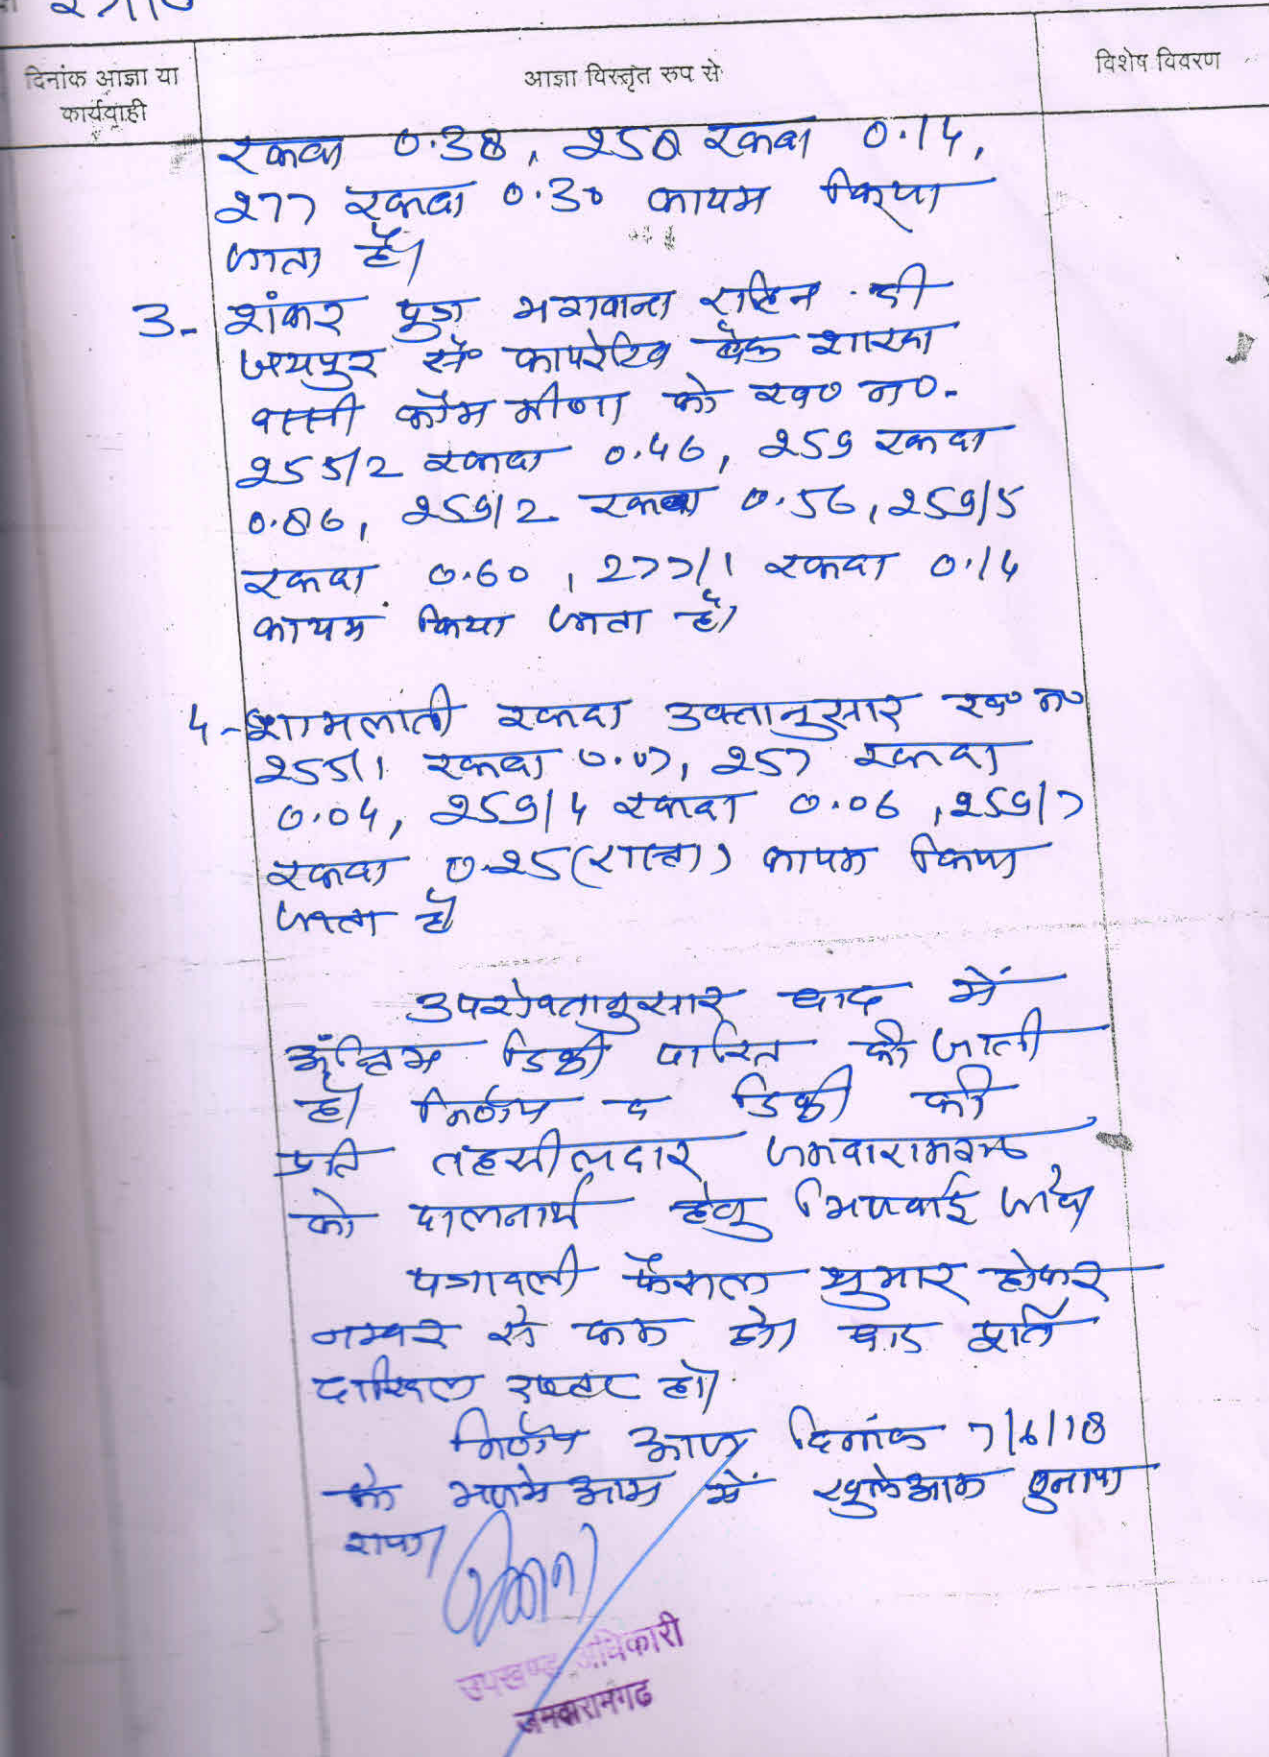 दिनांक आज्ञा या
कार्यवाही
आज्ञा विस्तृत रूप से
विशेष विवरण
रकबा 0.38, 258 रकबा 0.14,
277 रकबा 0.30 कायम किया
जाता है।
3- शंकर पुत्र भगवाना राहिन दी
जयपुर सै० कापरेटिव बैंक शाखा
बस्सी कौम मीणा के ख० न०-
255/2 रकबा 0.46, 259 रकबा
0.86, 259/2 रकबा 0.56, 259/5
रकबा 0.60, 277/1 रकबा 0.14
कायम किया जाता है।
4- शामलाती रकबा उक्तानुसार ख० न०
255/1 रकबा 0.07, 257 रकबा
0.04, 259/4 रकबा 0.06, 259/7
रकबा 0.25 (रास्ता) कायम किया
जाता है
उपरोक्तानुसार वाद में
अंतिम डिक्री पारित की जाती
है। निर्णय व डिक्री की
प्रति तहसीलदार जमवारामगढ
को पालनार्थ हेतु भिजवाई जावे।
पत्रावली फैसल शुमार होकर
नम्बर से कम हो। बाद पूर्ति
दाखिल दफ्तर हो।
निर्णय आज दिनांक 7/6/18
को मजमे आम में खुलेआम सुनाया
गया।
उपखण्ड अधिकारी
जमवारामगढ